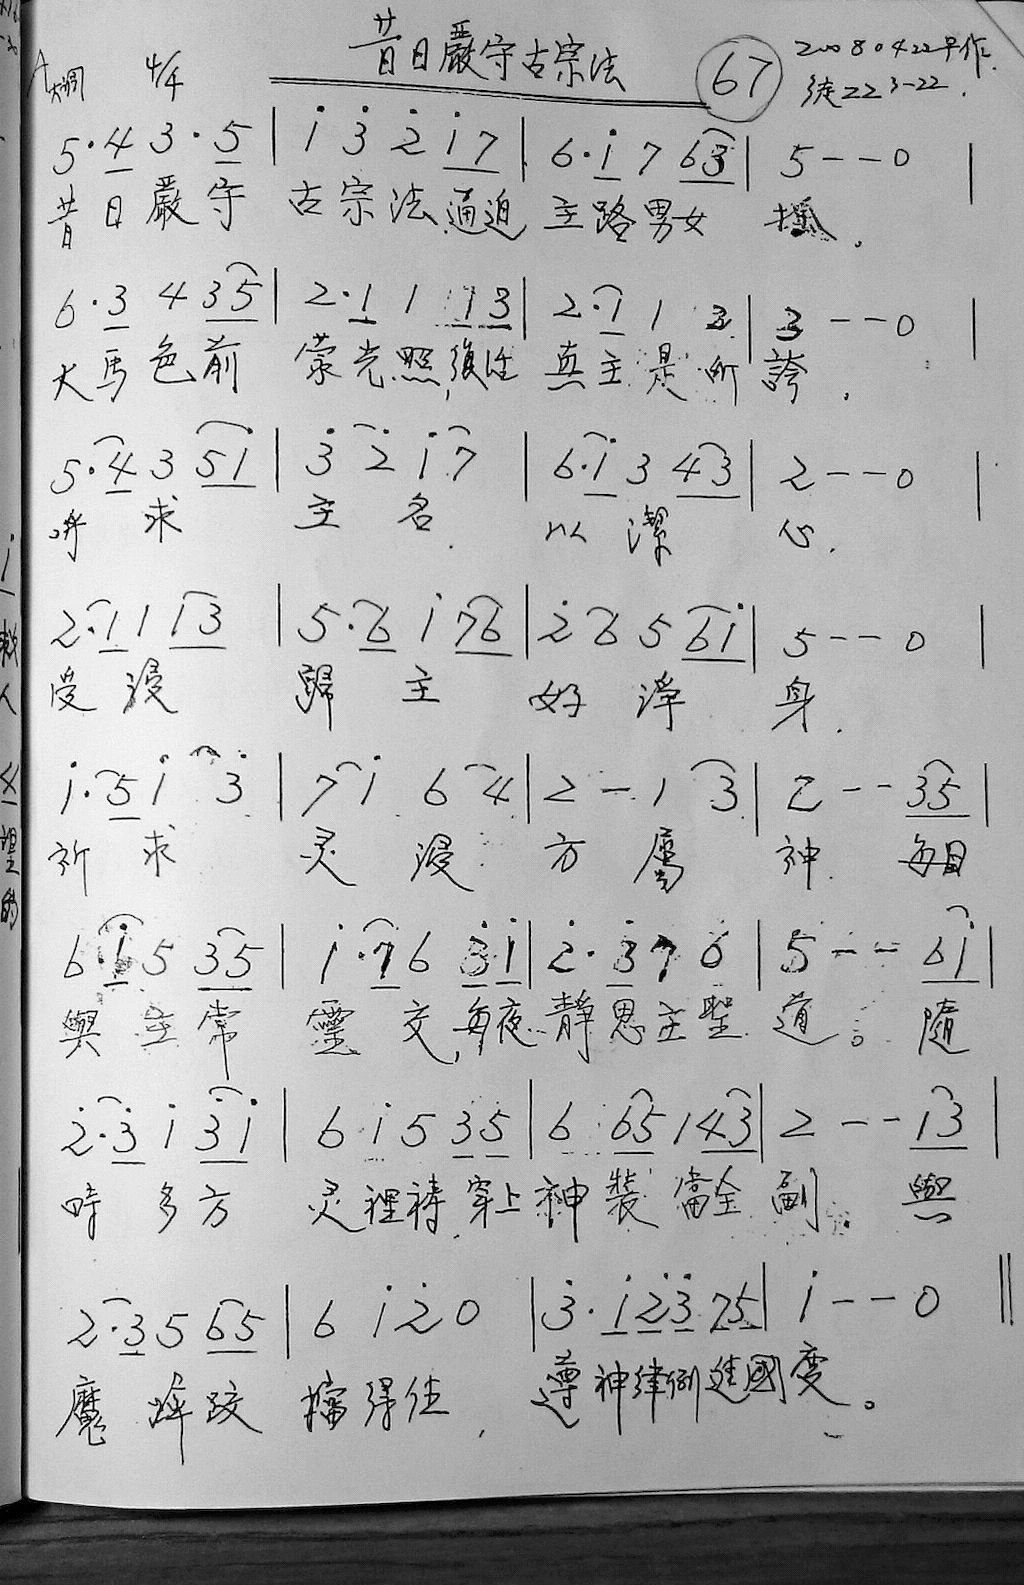 昔日嚴守古宗法 67 20080422早作.
A大调 4/4 徒22 3-22.
5·4 3·5 | i 3̇ 2̇ i7 | 6·i 7 63 | 5--0 |
昔日嚴守 古宗法逼迫 主路男女 抓。
6·3 4 35 | 2·1 1 13 | 2·1 1 3 | 3--0 |
大馬色前 蒙光照,復活 真主是所誇.
5·4 3 5i | 3̇ 2̇ i 7 | 6·i 3 43 | 2--0 |
呼求 主名. 以潔心.
2·1 1 13 | 5·6 i 76 | 2̇ 6 5 6i | 5--0 |
受浸 歸主 好淨身.
i·5 i 3̇ | 7 i 6 4 | 2-1 3 | 2--35 |
祈求 灵浸 方屬神. 每日
6·i 5 35 | i·7 6 3̇i | 2̇·3̇ 7 6 | 5--6i |
與主常 靈交,每夜靜思主聖道。隨
2̇·3̇ i 3̇i | 6 i 5 35 | 6 65 1 43 | 2--13 |
時多方 灵裡禱穿上神裝當全副. 與
2·3 5 65 | 6 i 2̇ 0 | 3̇·i2̇3̇ 75 | i--0 ‖
魔摔跤 擋得住, 遵神律例進國度。